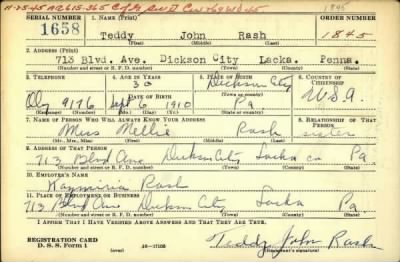 SERIAL NUMBER 1. NAME (Print) ORDER NUMBER
1658 Teddy John Rash 1845
(First) (Middle) (Last)
2. ADDRESS (Print)
713 Blvd. Ave. Dickson City Lacka. Penna.
(Number and street or R. F. D. number) (Town) (County) (State)
3. TELEPHONE 4. AGE IN YEARS 5. PLACE OF BIRTH 6. COUNTRY OF CITIZENSHIP
30 Dickson City
DATE OF BIRTH (Town or county)
Oly 9176 Sept 6 1910 Pa U.S.A.
(Exchange) (Number) (Mo.) (Day) (Yr.) (State or country)
7. NAME OF PERSON WHO WILL ALWAYS KNOW YOUR ADDRESS 8. RELATIONSHIP OF THAT PERSON
Miss Nellie Rash sister
(Mr., Mrs., Miss) (First) (Middle) (Last)
9. ADDRESS OF THAT PERSON
713 Blvd Ave Dickson City Lacka co Pa.
(Number and street or R. F. D. number) (Town) (County) (State)
10. EMPLOYER'S NAME
Rash
11. PLACE OF EMPLOYMENT OR BUSINESS
713 Blvd Ave Dickson City Lacka Pa.
(Number and street or R. F. D. number) (Town) (County) (State)
I AFFIRM THAT I HAVE VERIFIED ABOVE ANSWERS AND THAT THEY ARE TRUE.
REGISTRATION CARD
D. S. S. Form 1 (over) 16—17105 Teddy John Rash
(Registrant's signature)